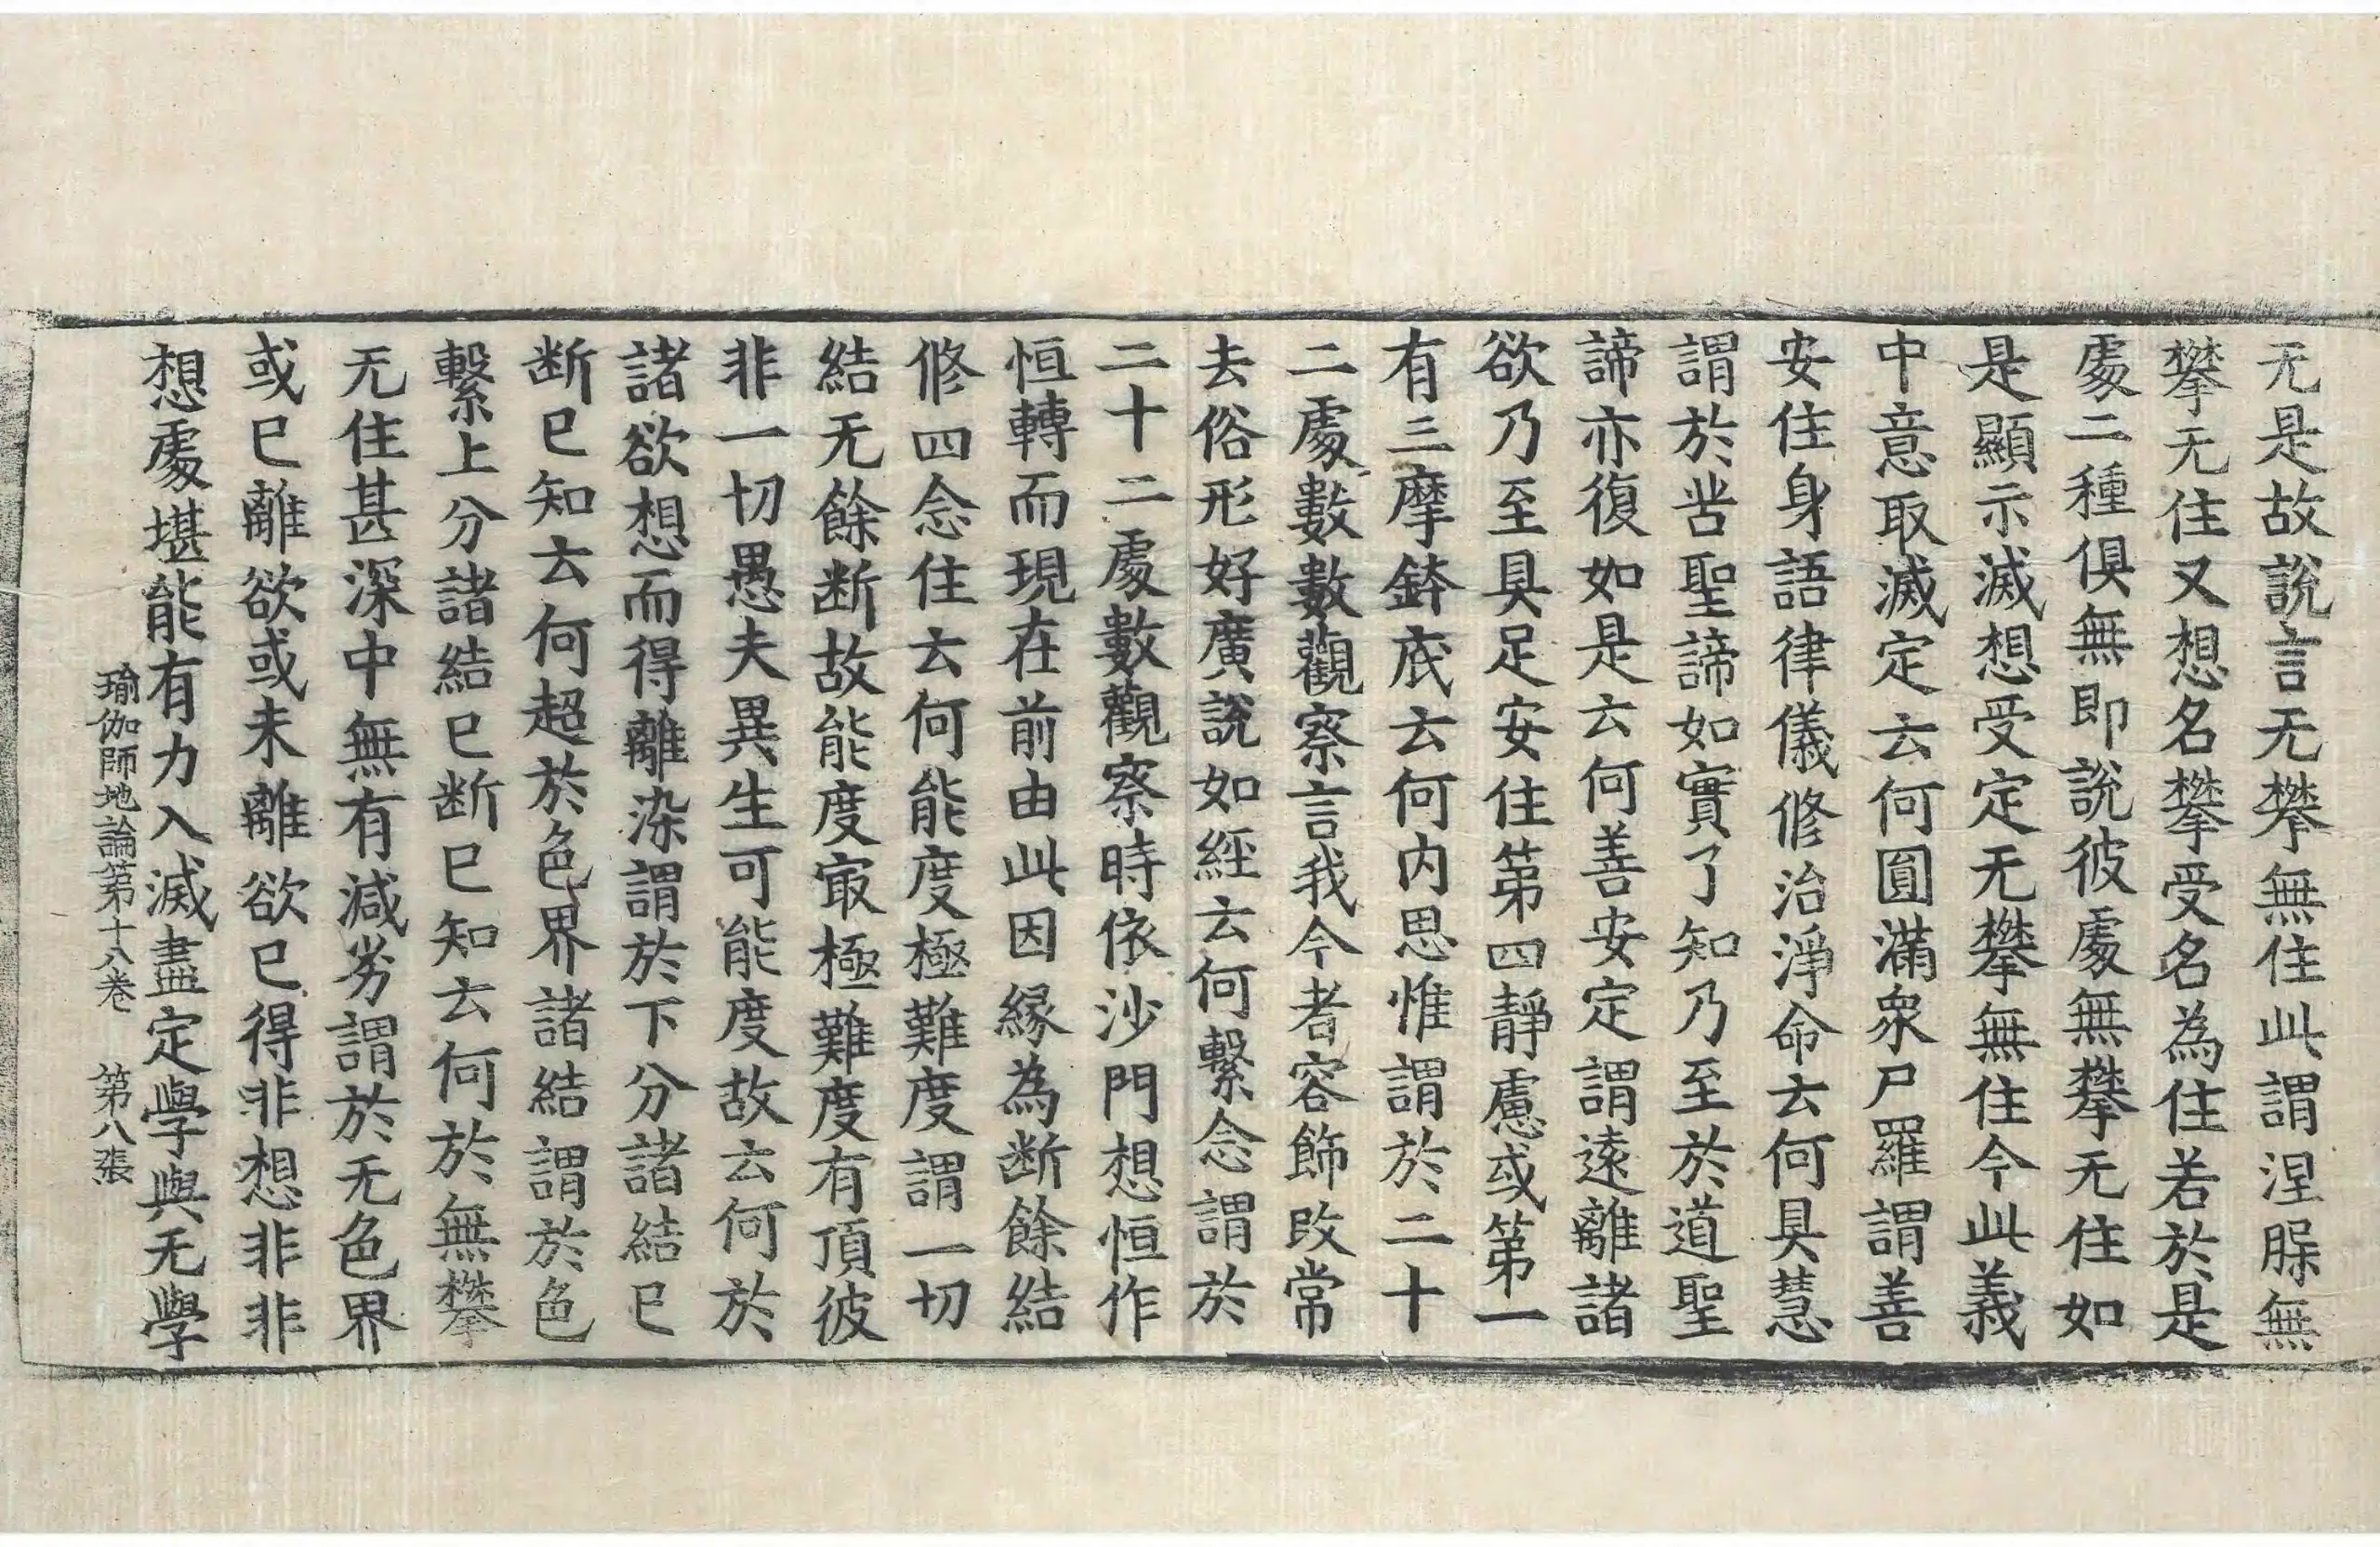 无是故說言无攀無住此謂涅脲無
攀无住又想名攀受名為住若於是
處二種俱無即說彼處無攀无住如
是顯示滅想受定无攀無住今此義
中意取滅定云何圓滿衆尸羅謂善
安住身語律儀修治淨命云何具慧
謂於苦聖諦如實了知乃至於道聖
諦亦復如是云何善安定謂遠離諸
欲乃至具足安住第四靜慮或第一
有三摩鉢底云何内思惟謂於二十
二處數數觀察言我今者容飾改常
去俗形好廣說如經云何繫念謂於
二十二處數觀察時依沙門想恒作
恒轉而現在前由此因緣為断餘結
修四念住云何能度極難度謂一切
結无餘断故能度㝡極難度有頂彼
非一切愚夫異生可能度故云何於
諸欲想而得離染謂於下分諸結已
断已知云何超於色界諸結謂於色
繫上分諸結已断已知云何於無攀
无住甚深中無有減劣謂於无色界
或已離欲或未離欲已得非想非非
想處堪能有力入滅盡定學與无學
瑜伽師地論第十八卷 第八張